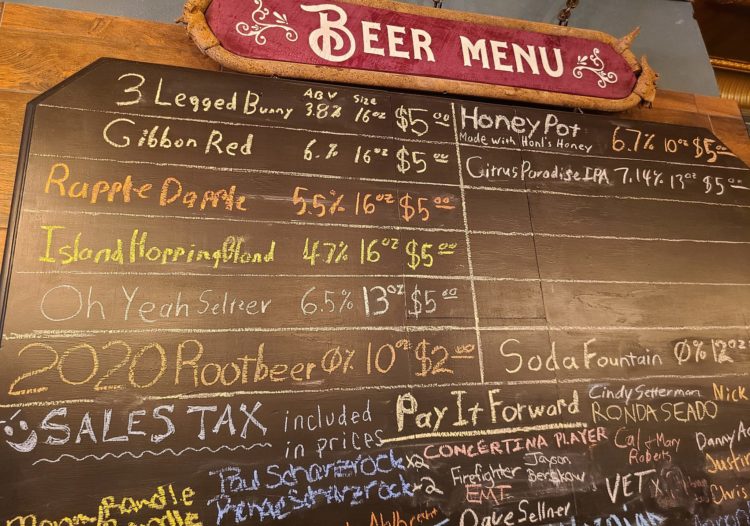 BEER MENU
ABV Size
3 Legged Bunny 3.8% 16oz $5.00
Gibbon Red 6.% 16oz $5.00
Rapple Dapple 5.5% 16oz $5.00
Island Hopping Blond 4.7% 16oz $5.00
Oh Yeah Seltzer 6.5% 13oz $5.00
2020 Rootbeer 0% 10oz $2.00
Honey Pot 6.7% 10oz $5.00
Made with Honl's Honey
Citrus Paradise IPA 7.14% 13oz $5.00
Soda Fountain 0% 12oz
SALES TAX included
in prices
Pay It Forward
Cindy Setterman Nick
RONDA SEADO
CONCERTINA PLAYER
Cal & Mary
Roberts
Danny
Paul Scharzrock x2
Scharzrock x2
Firefighter
EMT
Jayson
VET
Justin
Chris
Randle
Dave Sellner